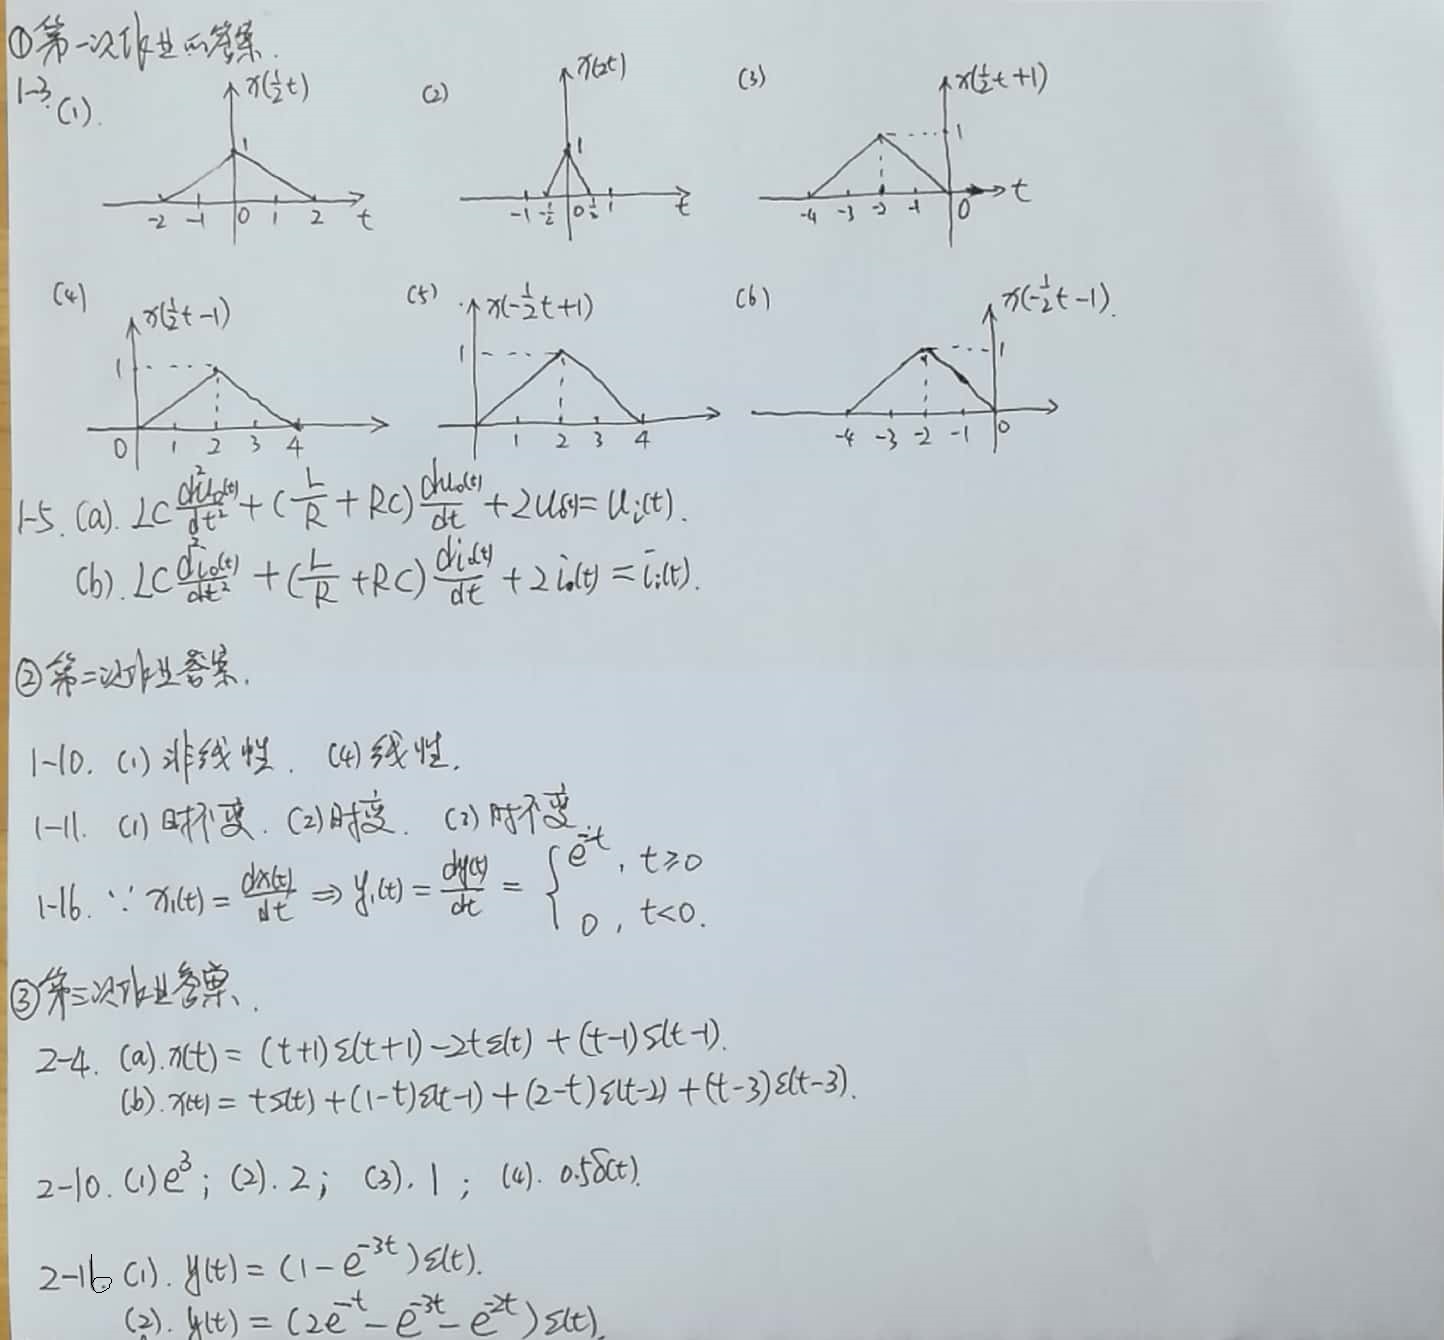 ①第一次作业的答案.
1-3. (1). x(½t) (2) x(2t) (3) x(½t+1)
1 1 1
-2 -1 0 1 2 t -1 -½ 0 ½ 1 t -4 -3 -2 -1 0 t
(4) x(½t-1) (5) x(-½t+1) (6) x(-½t-1).
1 1 1
0 1 2 3 4 1 2 3 4 -4 -3 -2 -1 0
1-5. (a). LC d²u₀(t)/dt² + (L/R + RC) du₀(t)/dt + 2u₀(t) = uᵢ(t).
(b). LC d²i₀(t)/dt² + (L/R + RC) di₀(t)/dt + 2i₀(t) = iᵢ(t).
②第二次作业答案.
1-10. (1) 非线性. (4) 线性.
1-11. (1) 时不变. (2) 时变. (3) 时不变
1-16. ∵ x₁(t) = dx(t)/dt ⇒ y₁(t) = dy(t)/dt = { e^{-t}, t≥0
0, t<0.
③第三次作业答案.
2-4. (a). x(t) = (t+1)ε(t+1) - 2tε(t) + (t-1)ε(t-1).
(b). x(t) = tε(t) + (1-t)ε(t-1) + (2-t)ε(t-2) + (t-3)ε(t-3).
2-10. (1) e³; (2). 2; (3). 1; (4). 0.5δ(t).
2-16. (1). y(t) = (1 - e^{-3t})ε(t).
(2). y(t) = (2e^{-t} - e^{-3t} - e^{-2t})ε(t).